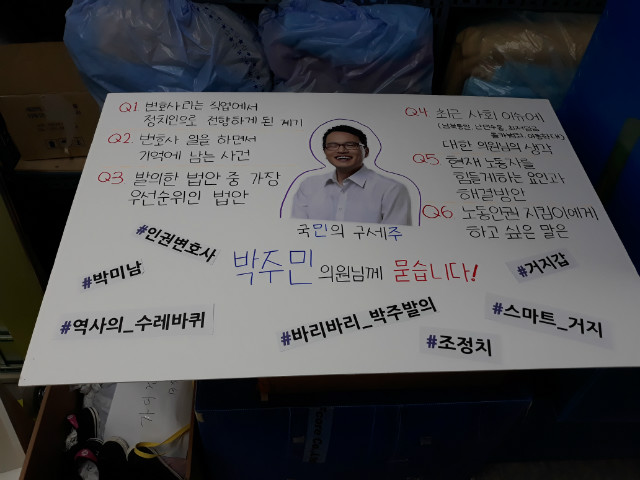 Q1 변호사라는 직업에서
정치인으로 전향하게 된 계기
Q2. 변호사 일을 하면서
기억에 남는 사건
Q3. 발의한 법안 중 가장
우선순위인 법안
Q4 최근 사회 이슈에
대한 의원님의 생각
Q5 현재 노동자를
힘들게하는 요인과
해결방안
Q6 노동인권 지킴이에게
하고 싶은 말은
국민의 구세주
박주민 의원님께 묻습니다!
#인권변호사
#박미남
#역사의_수레바퀴
#바리바리_박주발의
#조정치
#스마트_거지
#거지갑